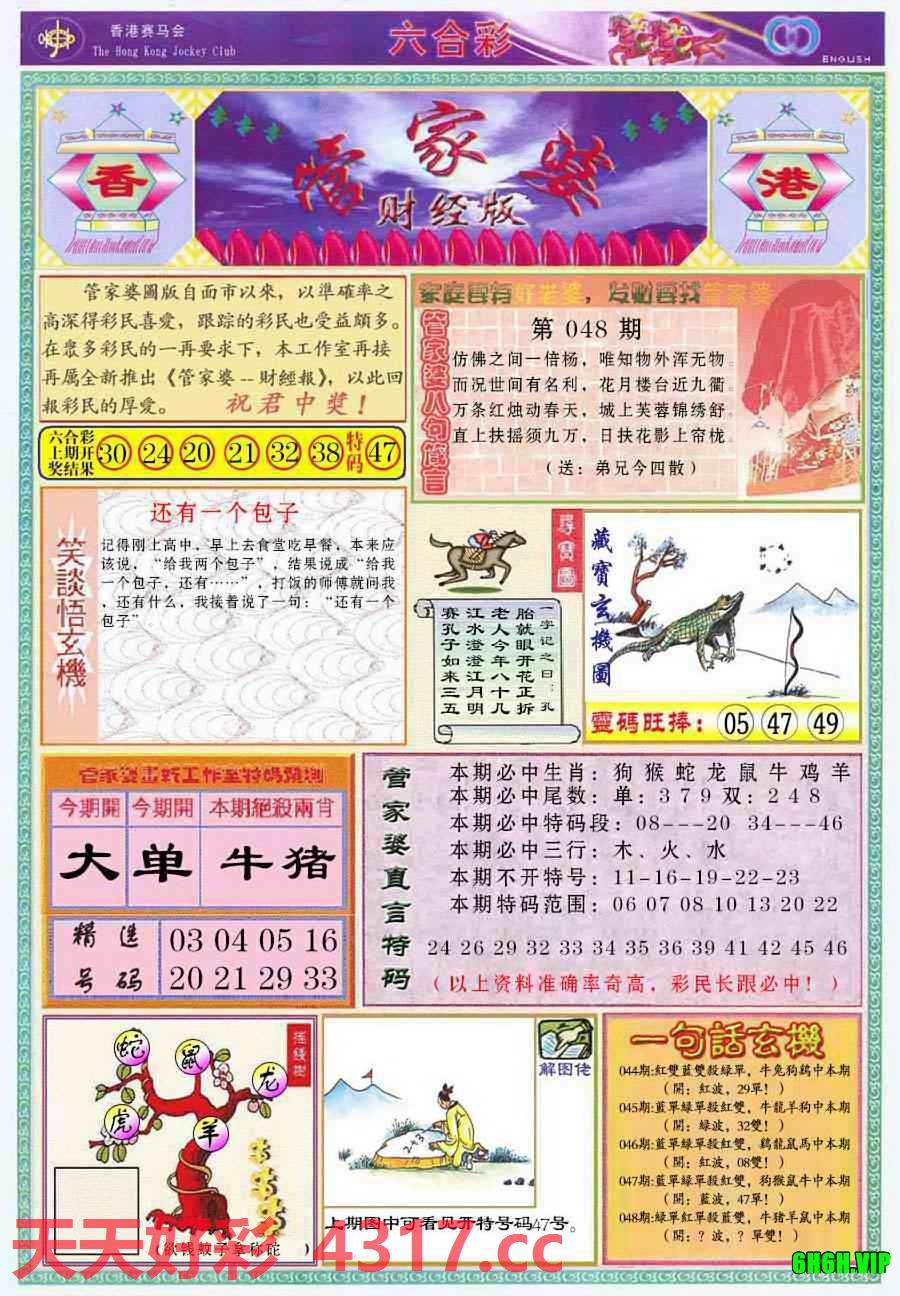 香港赛马会
The Hong Kong Jockey Club
六合彩
ENGLISH
香
管家婆
财经版
港
管家婆圖版自面市以來，以準確率之
高深得彩民喜愛，跟踪的彩民也受益頗多。
在眾多彩民的一再要求下，本工作室再接
再厲全新推出《管家婆--財經報》，以此回
報彩民的厚愛。 祝君中獎！
六合彩
上期开
奖结果
30 24 20 21 32 38 特码 47
家庭要有好老婆，发财要找管家婆
管家婆八句箴言
第 048 期
仿佛之间一倍杨，唯知物外浑无物。
而况世间有名利，花月楼台近九衢。
万条红烛动春天，城上芙蓉锦绣舒。
直上扶摇须九万，日扶花影上帘栊。
（送：弟兄今四散）
笑談悟玄機
还有一个包子
记得刚上高中，早上去食堂吃早餐，本来应
该说，“给我两个包子”，结果说成“给我
一个包子，还有……”，打饭的师傅就问我
，还有什么，我接着说了一句：“还有一个
包子”
尋寶圖
一字记之曰：孔
胎就眼开花正拆
老人今年八十几
江水澄澄江月明
赛孔子如来三五
藏寶玄機圖
靈碼旺捧： 05 47 49
管家婆畫新工作室特碼預測
今期開 今期開 本期絕殺兩肖
大 单 牛猪
精选号码
03 04 05 16
20 21 29 33
管家婆直言特码
本期必中生肖：狗 猴 蛇 龙 鼠 牛 鸡 羊
本期必中尾数：单：3 7 9 双：2 4 8
本期必中特码段：08---20 34---46
本期必中三行：木、火、水
本期不开特号：11-16-19-22-23
本期特码范围：06 07 08 10 13 20 22
24 26 29 32 33 34 35 36 39 41 42 45 46
（以上资料准确率奇高，彩民长跟必中！）
摇錢樹
蛇
鼠
龙
虎
羊
（欲钱蚊子章称砣 ）
解图佬
243
上期图中可看见开特号码47号。
一句話玄機
044期:紅雙藍雙殺綠單，牛兔狗鷄中本期
（開：紅波，29單！）
045期:藍單綠單殺紅雙，牛龍羊狗中本期
（開：綠波，32雙！）
046期:藍單綠單殺紅雙，鷄龍鼠馬中本期
（開：紅波，08雙！）
047期:藍單綠單殺紅雙，狗猴鼠牛中本期
（開：藍波，47單！）
048期:綠單紅單殺藍雙，牛猪羊鼠中本期
（開：？波，？單雙！）
天天好彩 4317.cc
6H6H.VIP